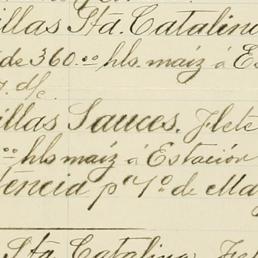 illas Sta. Catalina
de 360.00 hls. maiz á Es
illas Sauces. Flete
00 hls maiz á Estación
tencia pa. 1o. de Ma
Sta Catalina. Fle